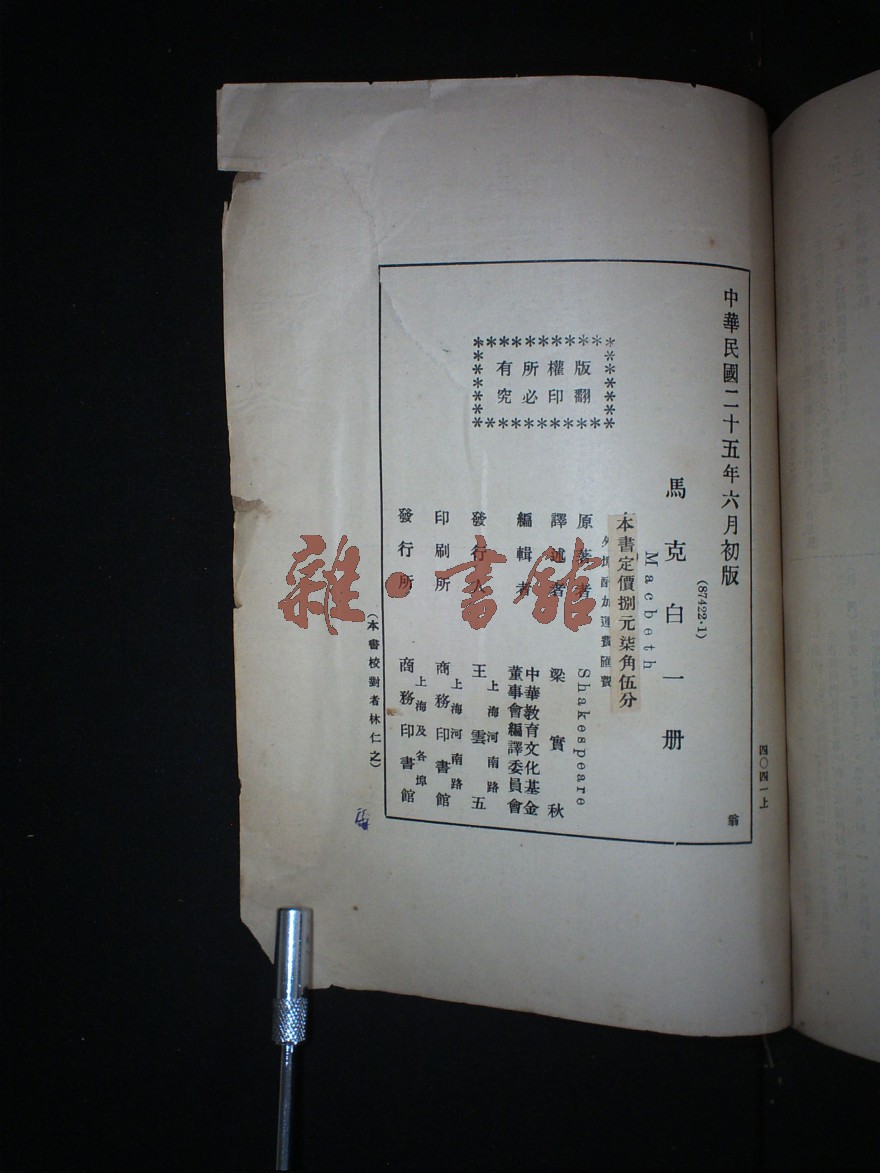 中華民國二十五年六月初版
(87422·1)
馬克白一册
Macbeth
本書定價捌元柒角伍分
外埠酌加運費匯費
原著者 Shakespeare
譯述者 梁實秋
編輯者 中華教育文化基金
董事會編譯委員會
發行人 王雲五
上海河南路
印刷所 商務印書館
上海河南路
發行所 商務印書館
上海及各埠
版權所有
翻印必究
(本書校對者林仁之)
四〇四一上
翁
雜·書館